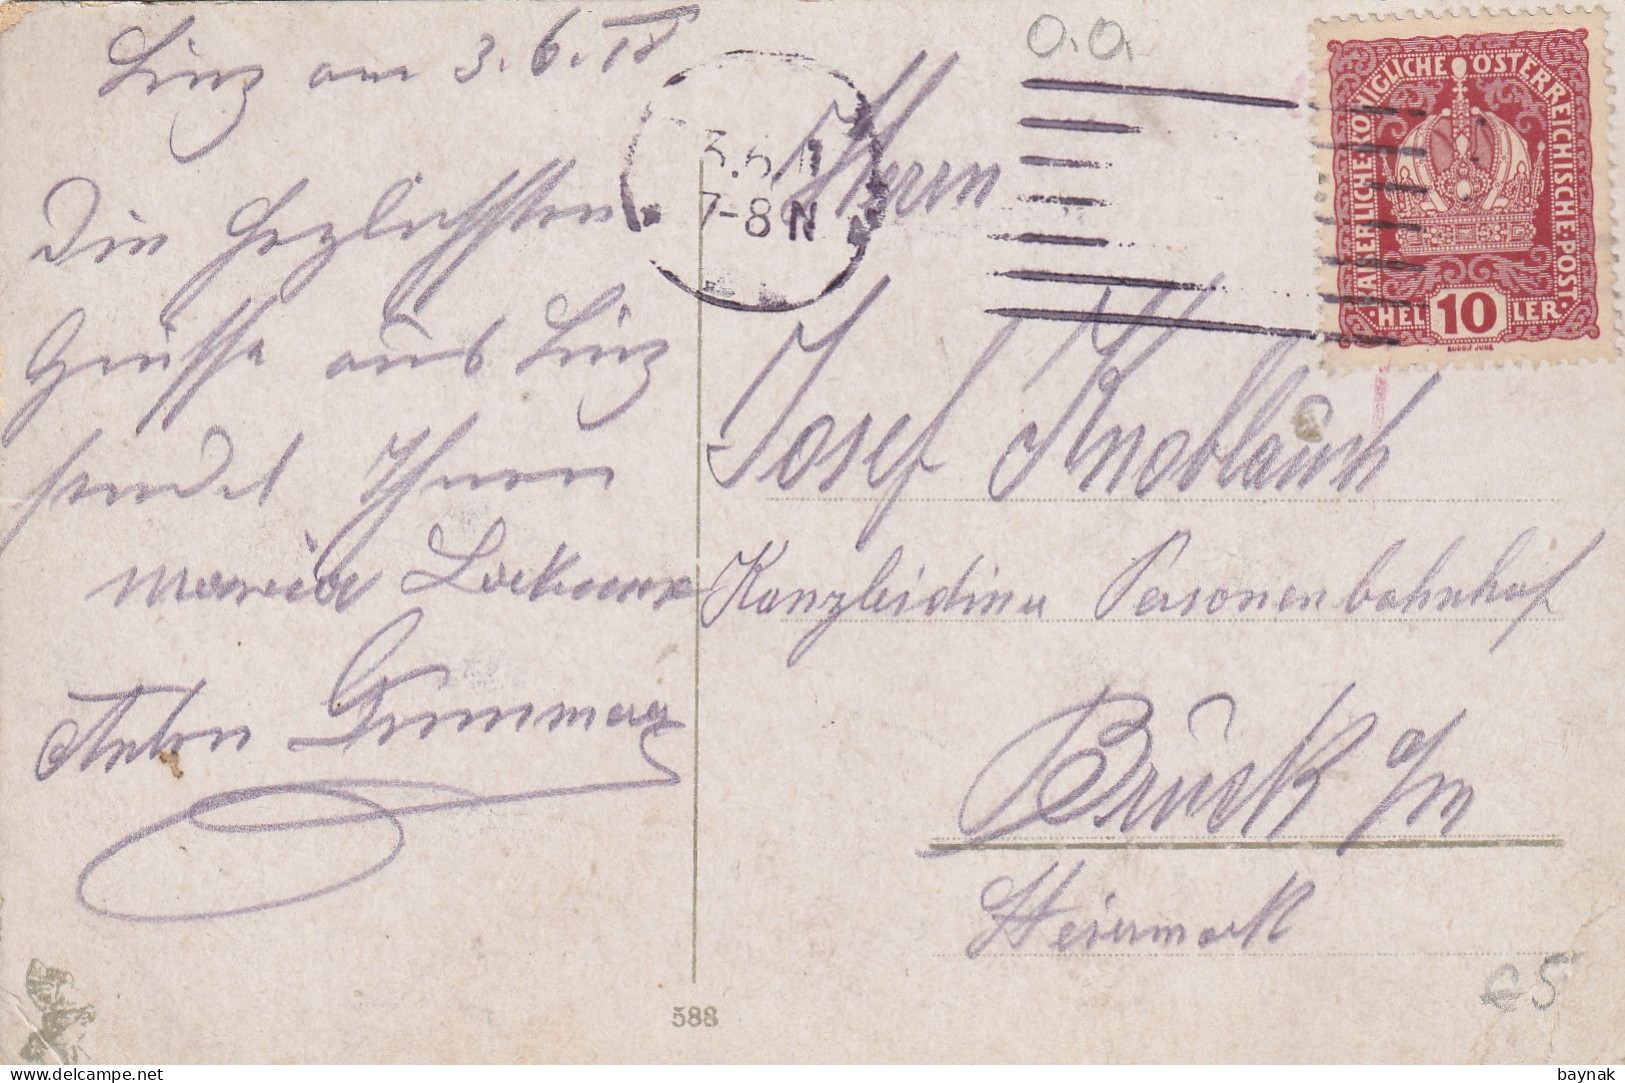 Linz am 3. 6. 18
Die herzlichsten
Grüsse aus Linz
sendet Ihnen
Maria
Anton
3.6.
7-8 N
O.Ö.
KAISERLICHE KÖNIGLICHE ÖSTERREICHISCHE POST
HEL 10 LER
RUDOLF JUNK
Herrn
Josef Knoblauch
Kanzleidiener Personenbahnhof
Bruck a/m
Steiermark
588
€5
baynak